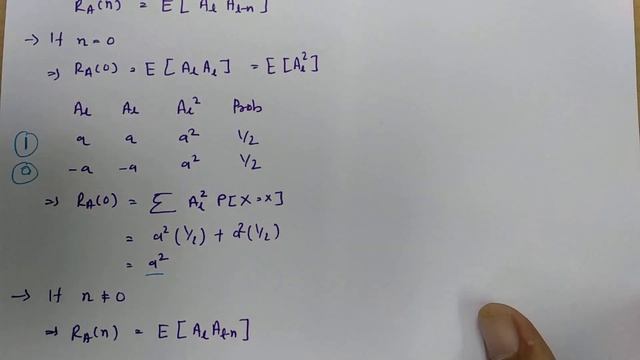 R_A(n) = E[A_l A_l-n]
→ If n=0
⇒ R_A(0) = E[A_l A_l] = E[A_l²]
A_l A_l A_l² Prob
1 a a a² 1/2
0 -a -a a² 1/2
⇒ R_A(0) = Σ A_l² P[X=x]
= a²(1/2) + a²(1/2)
= a²
→ If n≠0
⇒ R_A(n) = E[A_l A_l-n]